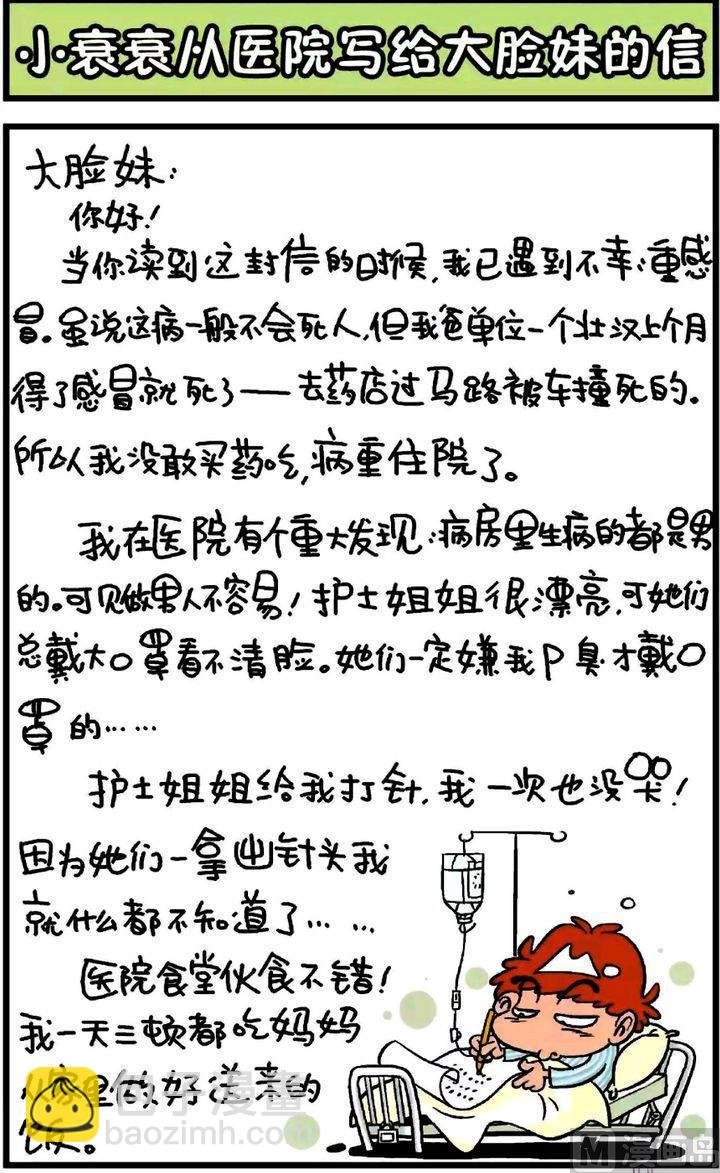 小衰衰从医院写给大脸妹的信
大脸妹：
你好！
当你读到这封信的时候，我已遇到不幸：重感
冒。虽说这病一般不会死人，但我爸单位一个壮汉上个月
得了感冒就死了——去药店过马路被车撞死的。
所以我没敢买药吃，病重住院了。
我在医院有个重大发现：病房里生病的都是男
的。可见做男人不容易！护士姐姐很漂亮，可她们
总戴大口罩看不清脸。她们一定嫌我P臭才戴口
罩的……
护士姐姐给我打针，我一次也没哭！
因为她们一拿出针头我
就什么都不知道了……
医院食堂伙食不错！
我一天三顿都吃妈妈
里做好送来的
饭。
包子漫畫
baozimh.com
漫画岛